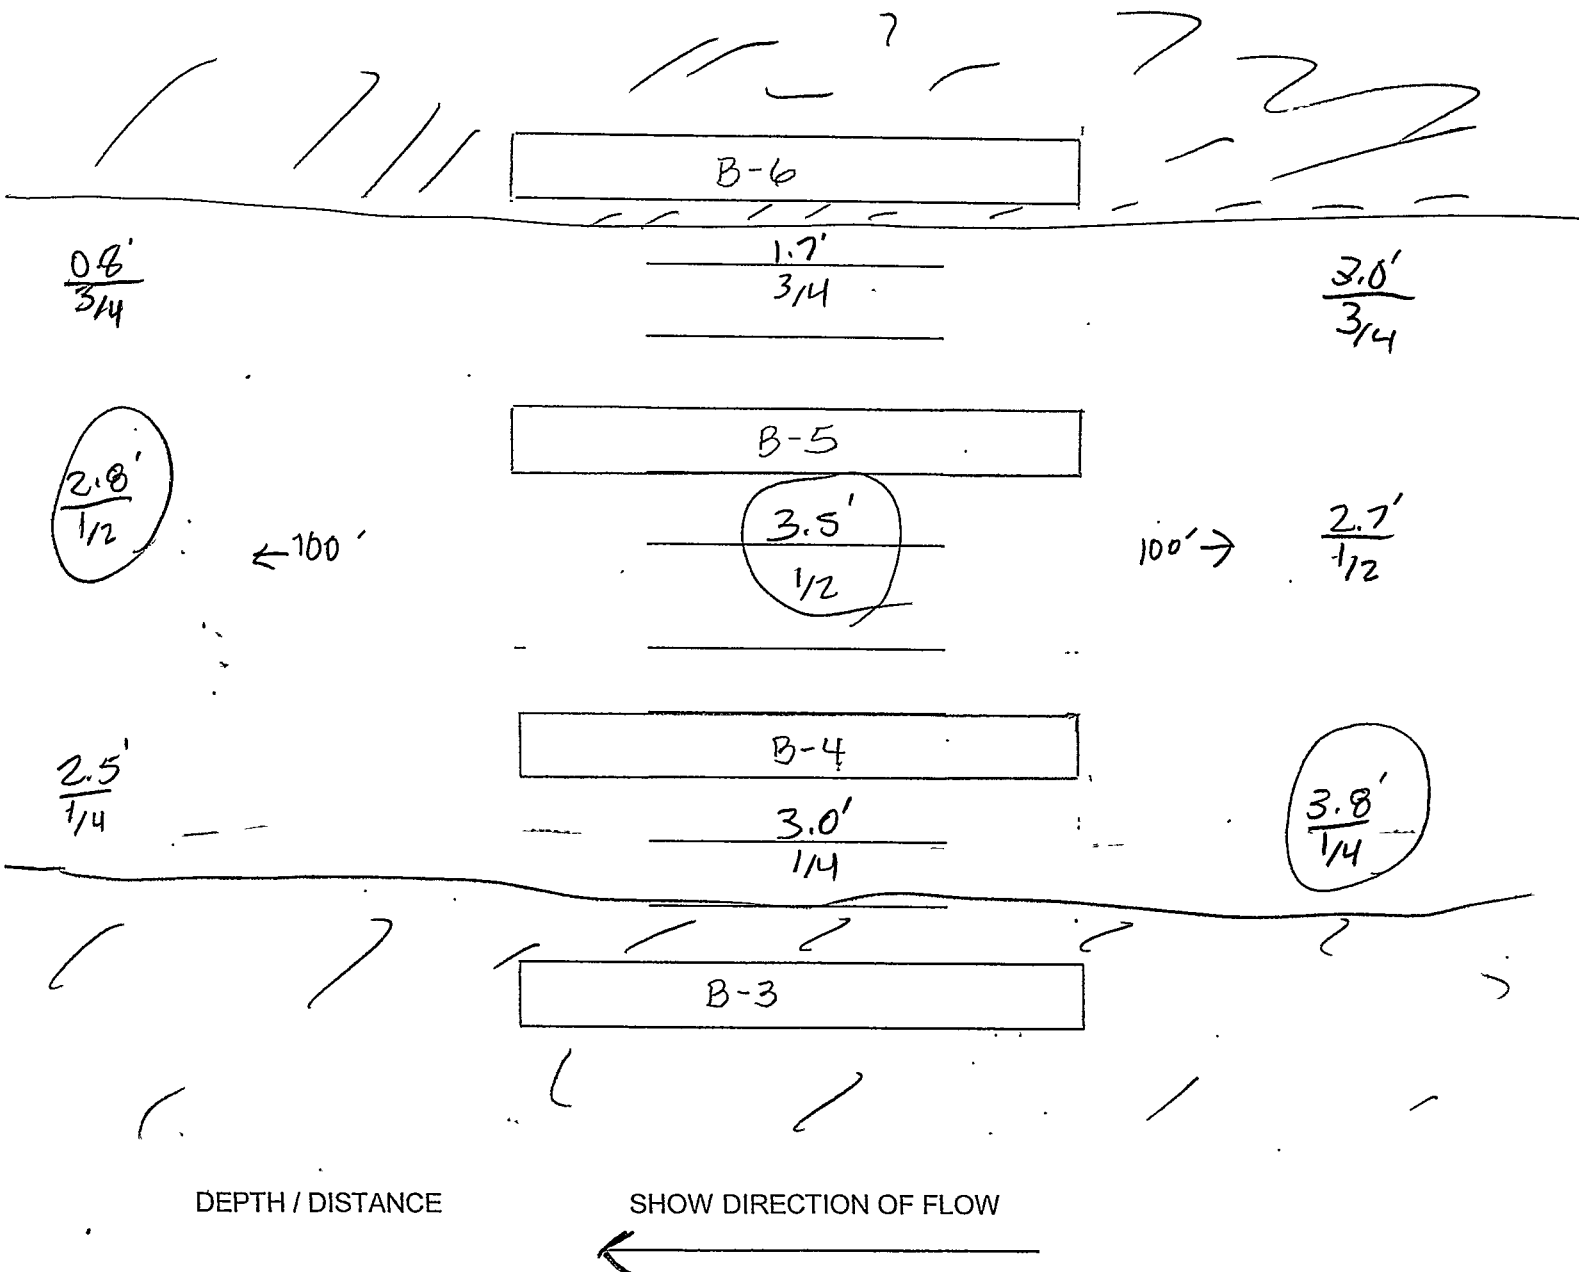 B-6
0.8'
3/4
1.7'
3/4
3.0'
3/4
B-5
2.8'
1/2
←100'
3.5'
1/2
100'→
2.7'
1/2
B-4
2.5'
1/4
3.0'
1/4
3.8'
1/4
B-3
DEPTH / DISTANCE
SHOW DIRECTION OF FLOW